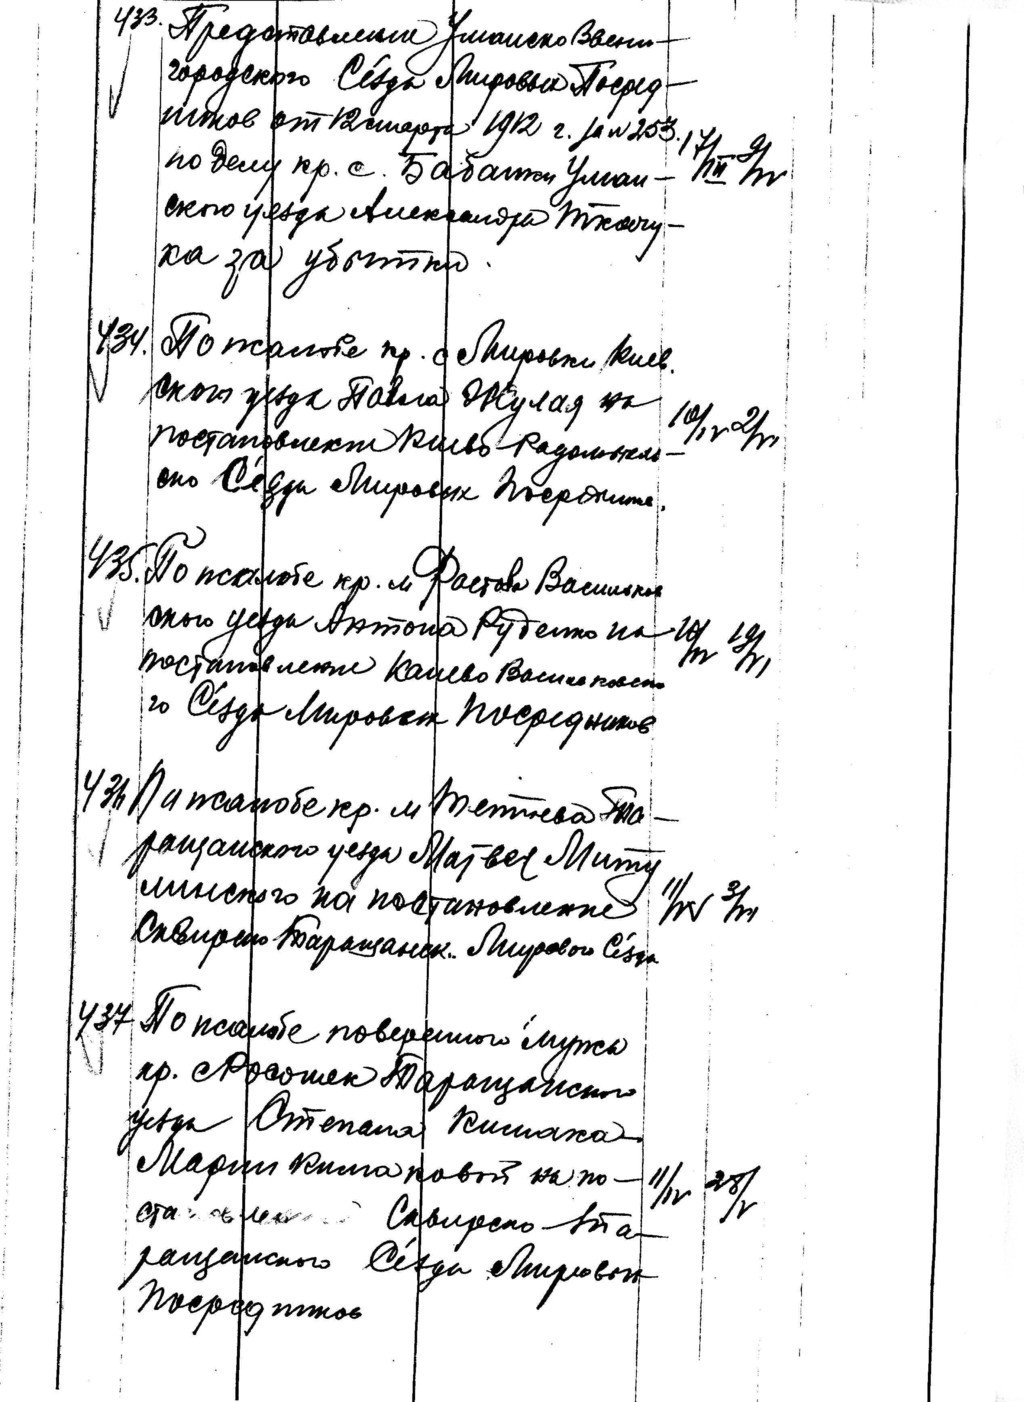 433. Представление Уманско Звени-
городского Съезда Мировых Посред-
ников от 12 марта 1912 г. за № 253. 17/III 9/IV
по делу кр. с. Бабанки Уман-
ского уезда Александра Ткачу-
ка за убытки.
434. По жалобе кр. с Мировки Киев.
ского уезда Павла Жулая на
постановление Киево-Радомысль- 10/IV 2/VI
ско Съезда Мировых Посредник.
435. По жалобе кр. м Фастова Васильков
ского уезда Антона Руденко на 10/IV 19/VI
постановление Канево Васильковско
го Съезда Мировых Посредников
436 По жалобе кр. м Тетиева Та-
ращанского уезда Матвея Миту
линского на постановление 11/IV 3/VI
Сквирско Таращанск. Мирового Съезда
437 По жалобе поверенного мужа
кр. с Росошек Таращанского
уезда Степана Кишака
Марии Кишаковой на по- 11/IV 28/V
становлен Сквирско-Та-
ращанского Съезда Мировых
Посредников